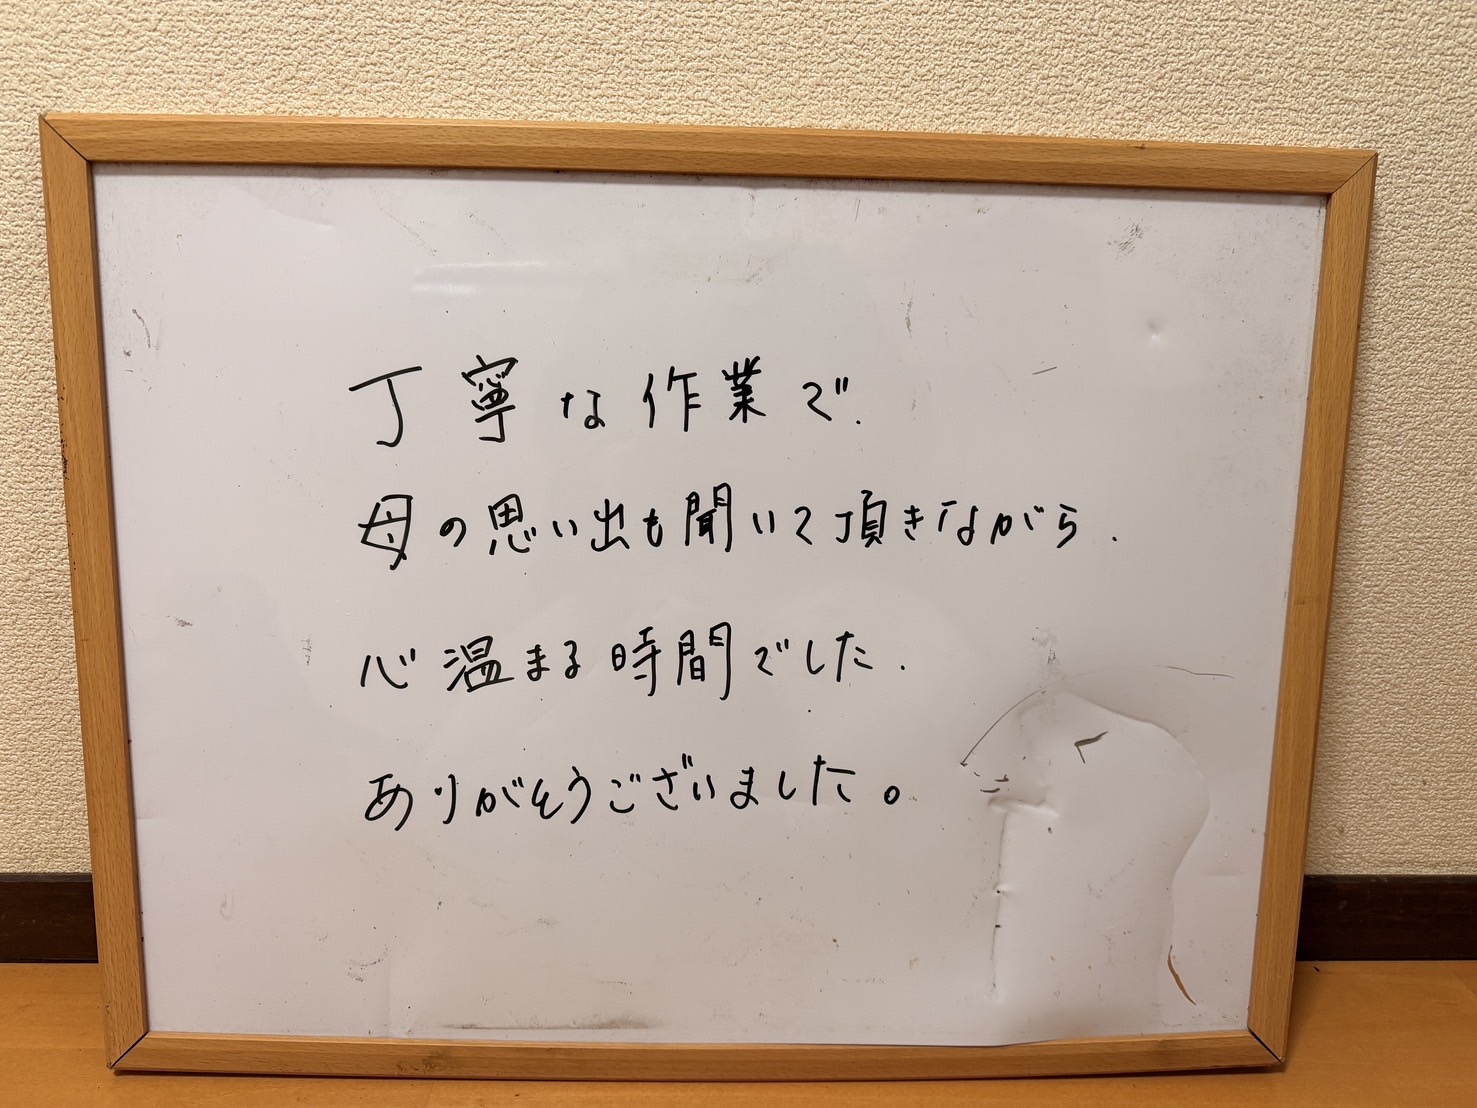 丁寧な作業で.
母の思い出も聞いて頂きながら.
心温まる時間でした.
ありがとうございました。